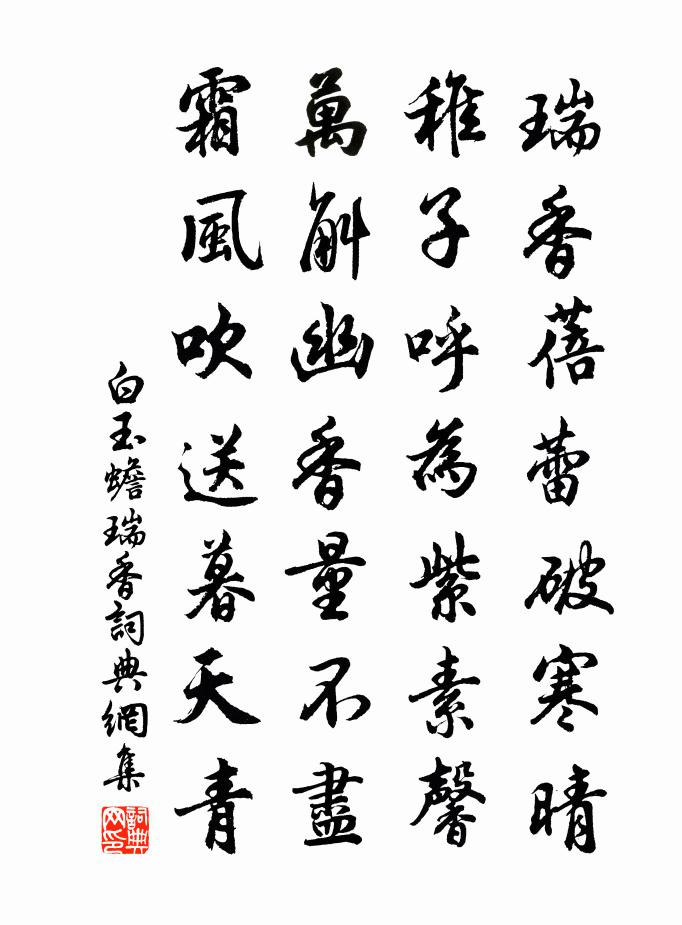 瑞香蓓蕾破寒晴
稚子呼為紫素馨
萬斛幽香量不盡
霜風吹送暮天青
白玉蟾瑞香詞典網集
詞典网印